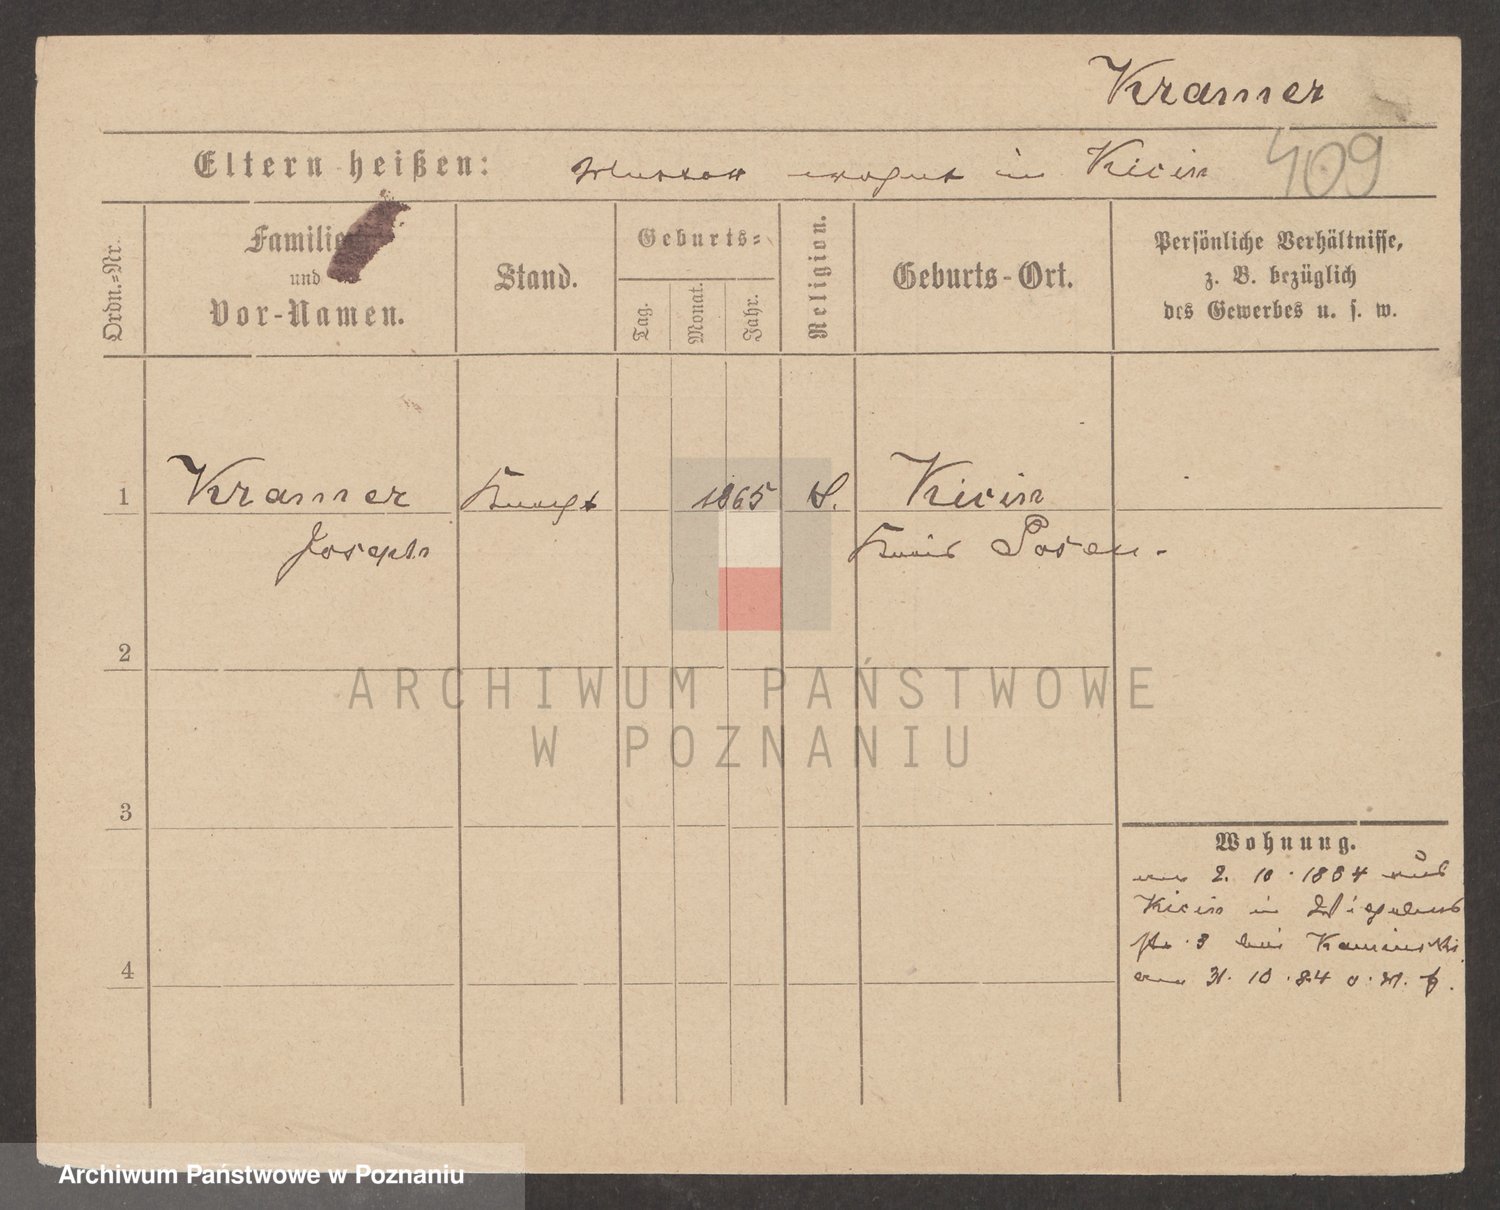 Kramer
Eltern heißen: Mutter wohnt in Kicin
409
Ordn.-Nr.
Familien-
und
Vor-Namen.
Stand.
Geburts-
Tag.
Monat.
Jahr.
Religion.
Geburts-Ort.
Persönliche Verhältnisse,
z. B. bezüglich
des Gewerbes u. s. w.
1 Kramer Knecht 1865 Kicin
Joseph Kreis Posen.
2
ARCHIWUM PAŃSTWOWE
W POZNANIU
3
Wohnung.
am 2. 10. 1884 aus
Kicin in
str. 3 bei Kaminski
4
am 31. 10. 84
Archiwum Państwowe w Poznaniu